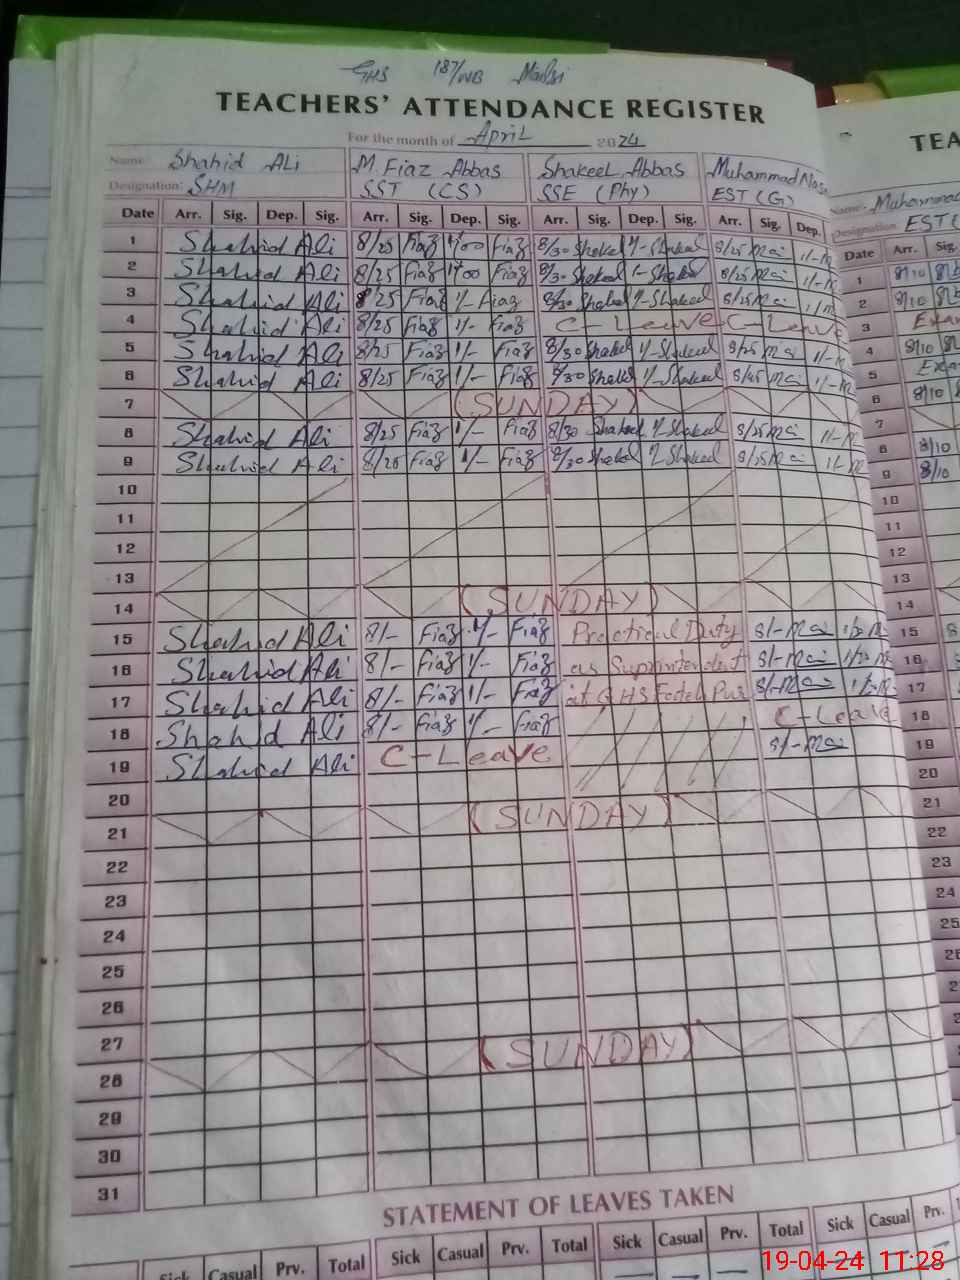 GHS 187/WB Mailsi
TEACHERS' ATTENDANCE REGISTER
For the month of April 2024
Name: Shahid Ali M Fiaz Abbas Shakeel Abbas Muhammad
Designation: SHM SST (CS) SSE (Phy) EST (G)
Date Arr. Sig. Dep. Sig. Arr. Sig. Dep. Sig. Arr. Sig. Dep. Sig. Arr. Sig. Dep.
1 Shahid Ali 8/25 Fiaz 1/00 Fiaz 8/30 Shakeel 1/- Shakeel 8/25
2 Shahid Ali 8/25 Fiaz 1/00 Fiaz 8/30 Shakeel 1/- Shakeel 8/25
3 Shahid Ali 8/25 Fiaz 1/- Fiaz 8/30 Shakeel 1/- Shakeel 8/25
4 Shahid Ali 8/25 Fiaz 1/- Fiaz C-Leave C-Leave
5 Shahid Ali 8/25 Fiaz 1/- Fiaz 8/30 Shakeel 1/- Shakeel 8/25
6 Shahid Ali 8/25 Fiaz 1/- Fiaz 8/30 Shakeel 1/- Shakeel
7 (SUNDAY)
8 Shahid Ali 8/25 Fiaz 1/- Fiaz 8/30 Shakeel 1/- Shakeel 8/25
9 Shahid Ali 8/25 Fiaz 1/- Fiaz 8/30 Shakeel 1/- Shakeel 8/25
10
11
12
13
14 (SUNDAY)
15 Shahid Ali 8/- Fiaz 1/- Fiaz Practical Duty 8/-
16 Shahid Ali 8/- Fiaz 1/- Fiaz as Suprintendent 8/-
17 Shahid Ali 8/- Fiaz 1/- Fiaz at GHS Fateh Pur 8/-
18 Shahid Ali 8/- Fiaz 1/- Fiaz C-Leave
19 Shahid Ali C-Leave 8/-
20
21 (SUNDAY)
22
23
24
25
26
27
28 (SUNDAY)
29
30
31
STATEMENT OF LEAVES TAKEN
Sick Casual Prv. Total Sick Casual Prv. Total Sick Casual Prv. Total Sick Casual Prv.
Name: Muhammad
Designation: EST
Date Arr. Sig.
1 8/10
2 8/10
3
4 8/10
5
6 8/10
7
8 8/10
9 8/10
10
11
12
13
14
15
16
17
18
19
20
21
22
23
24
25
19-04-24 11:28